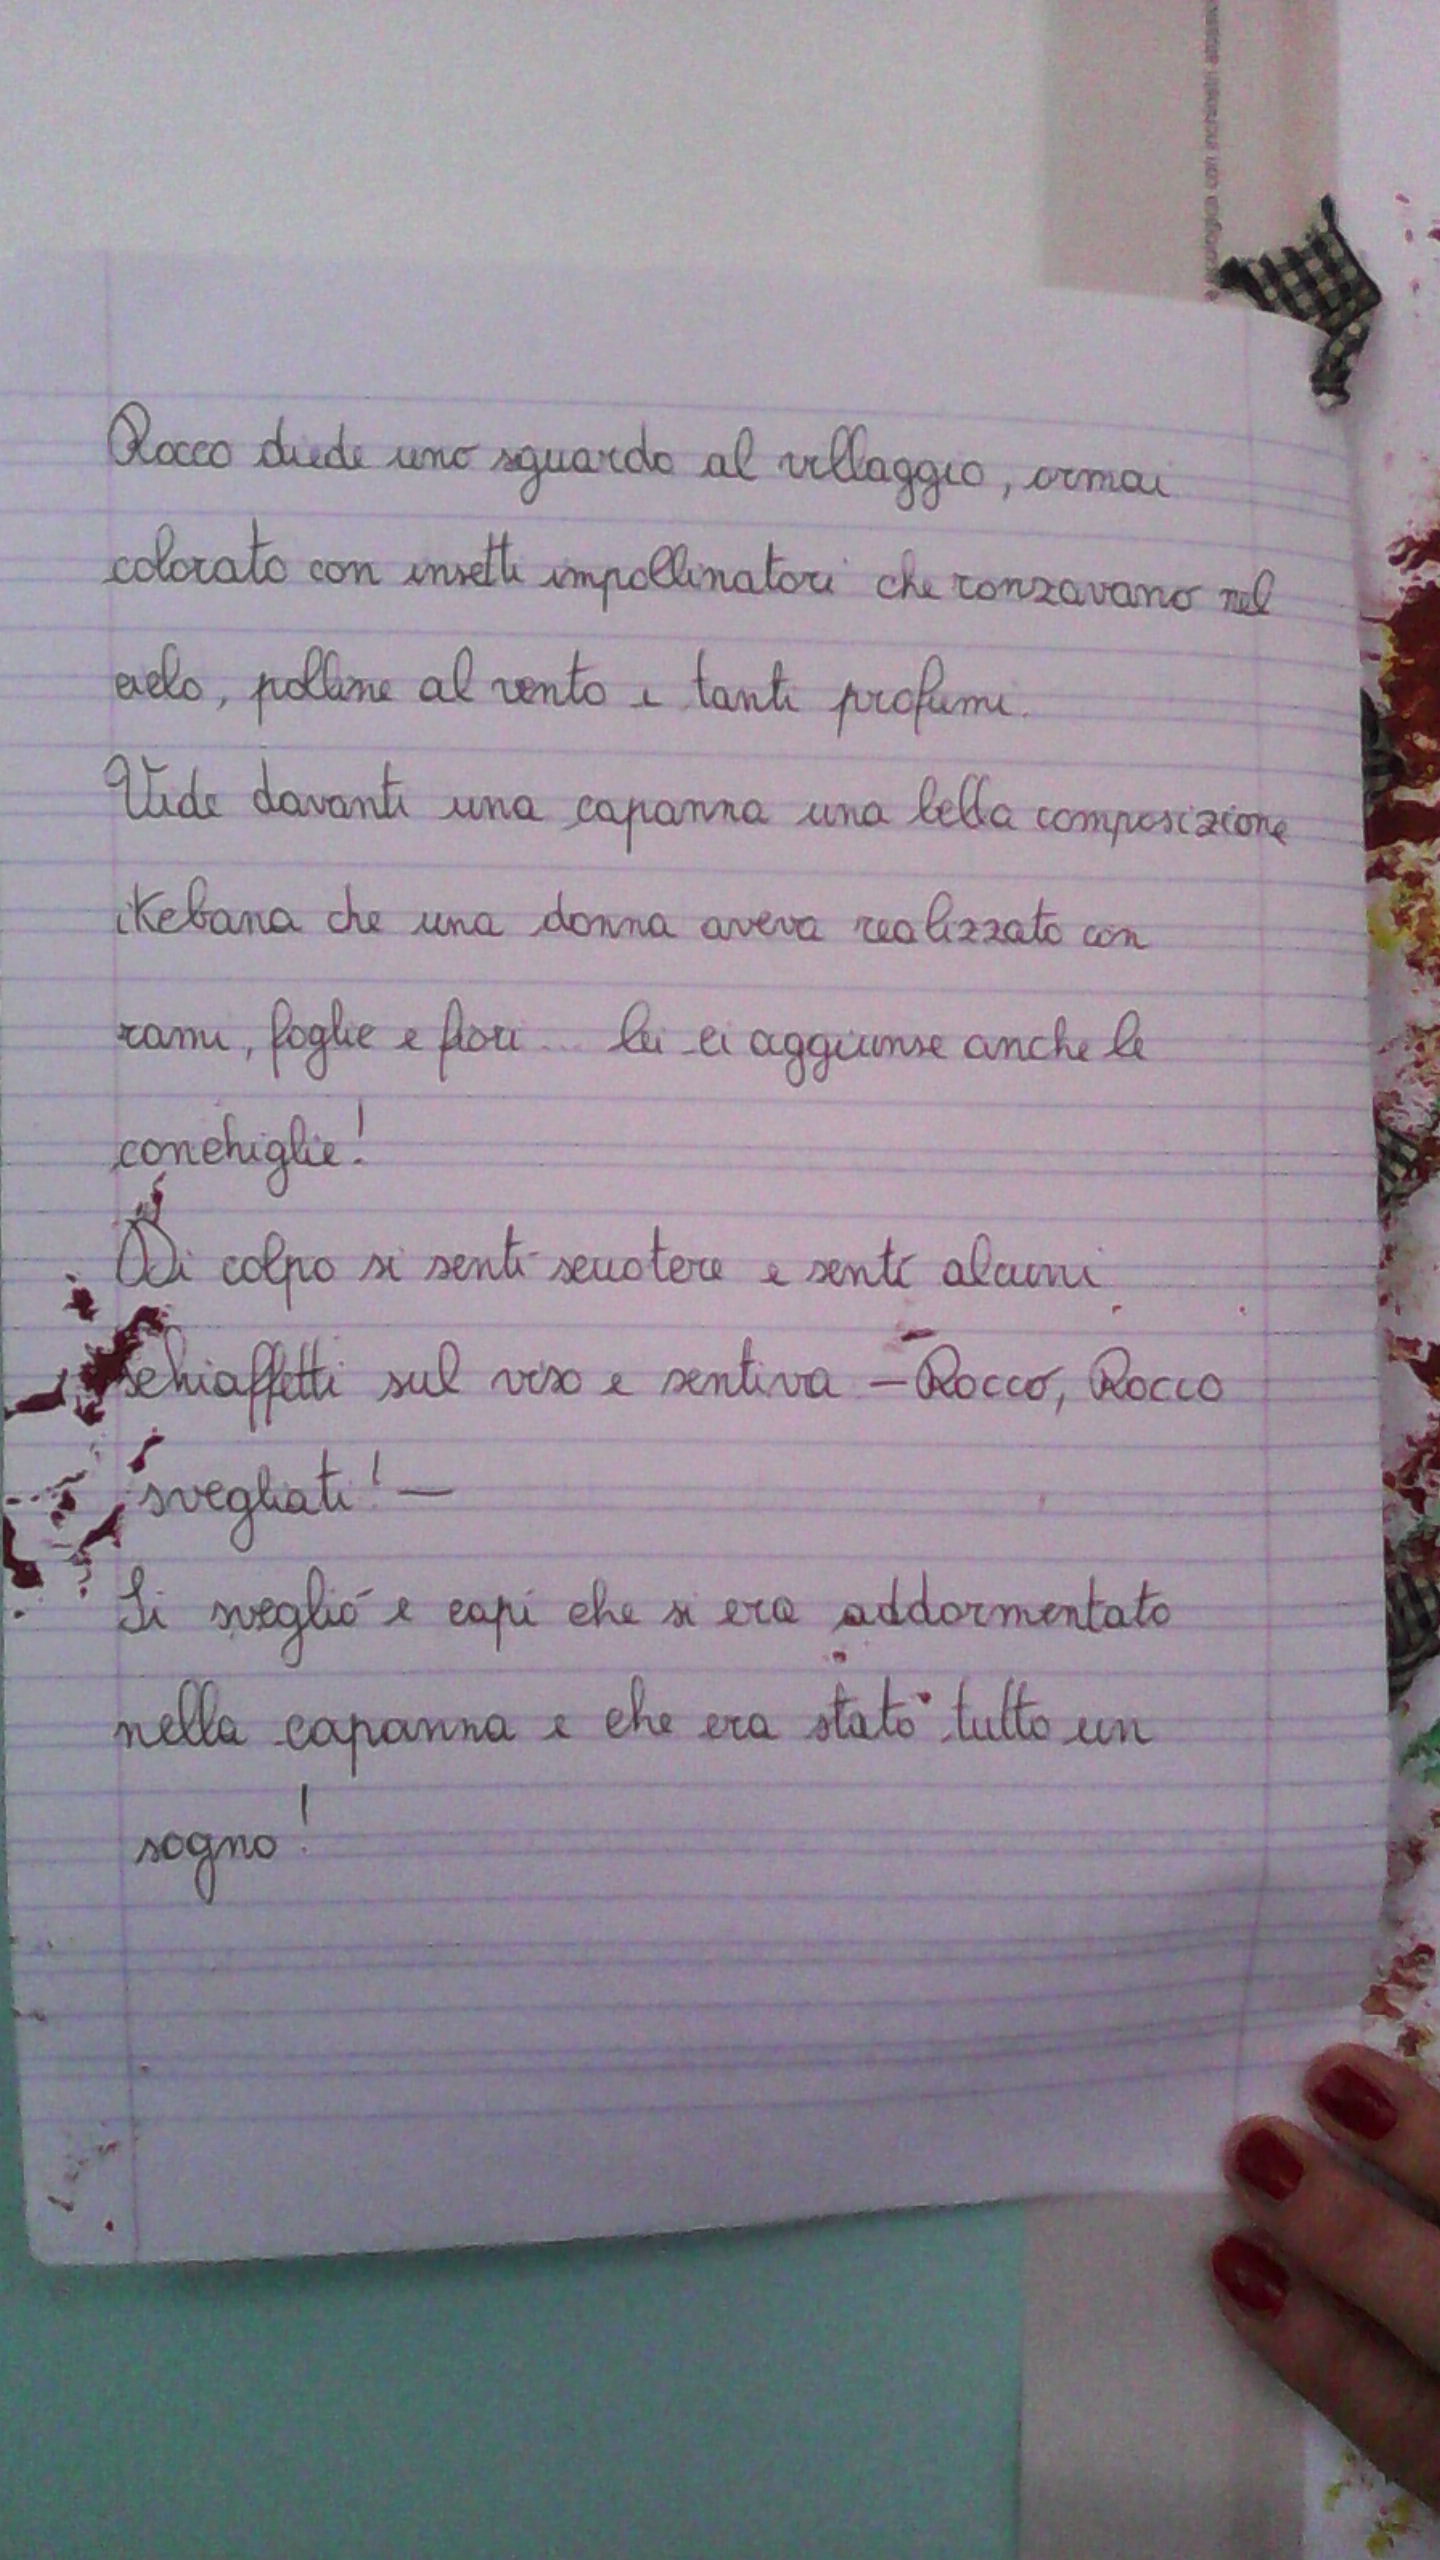 Rocco diede uno sguardo al villaggio, ormai
colorato con insetti impollinatori che ronzavano nel
cielo, polline al vento e tanti profumi.
Vide davanti una capanna una bella composizione
ikebana che una donna aveva realizzato con
rami, foglie e fiori... lei ci aggiunse anche le
conchiglie!
Di colpo si sentì scuotere e sentì alcuni
schiaffetti sul viso e sentiva - Rocco, Rocco
svegliati! -
Si svegliò e capì che si era addormentato
nella capanna e che era stato tutto un
sogno!
ecologica con inchiostri